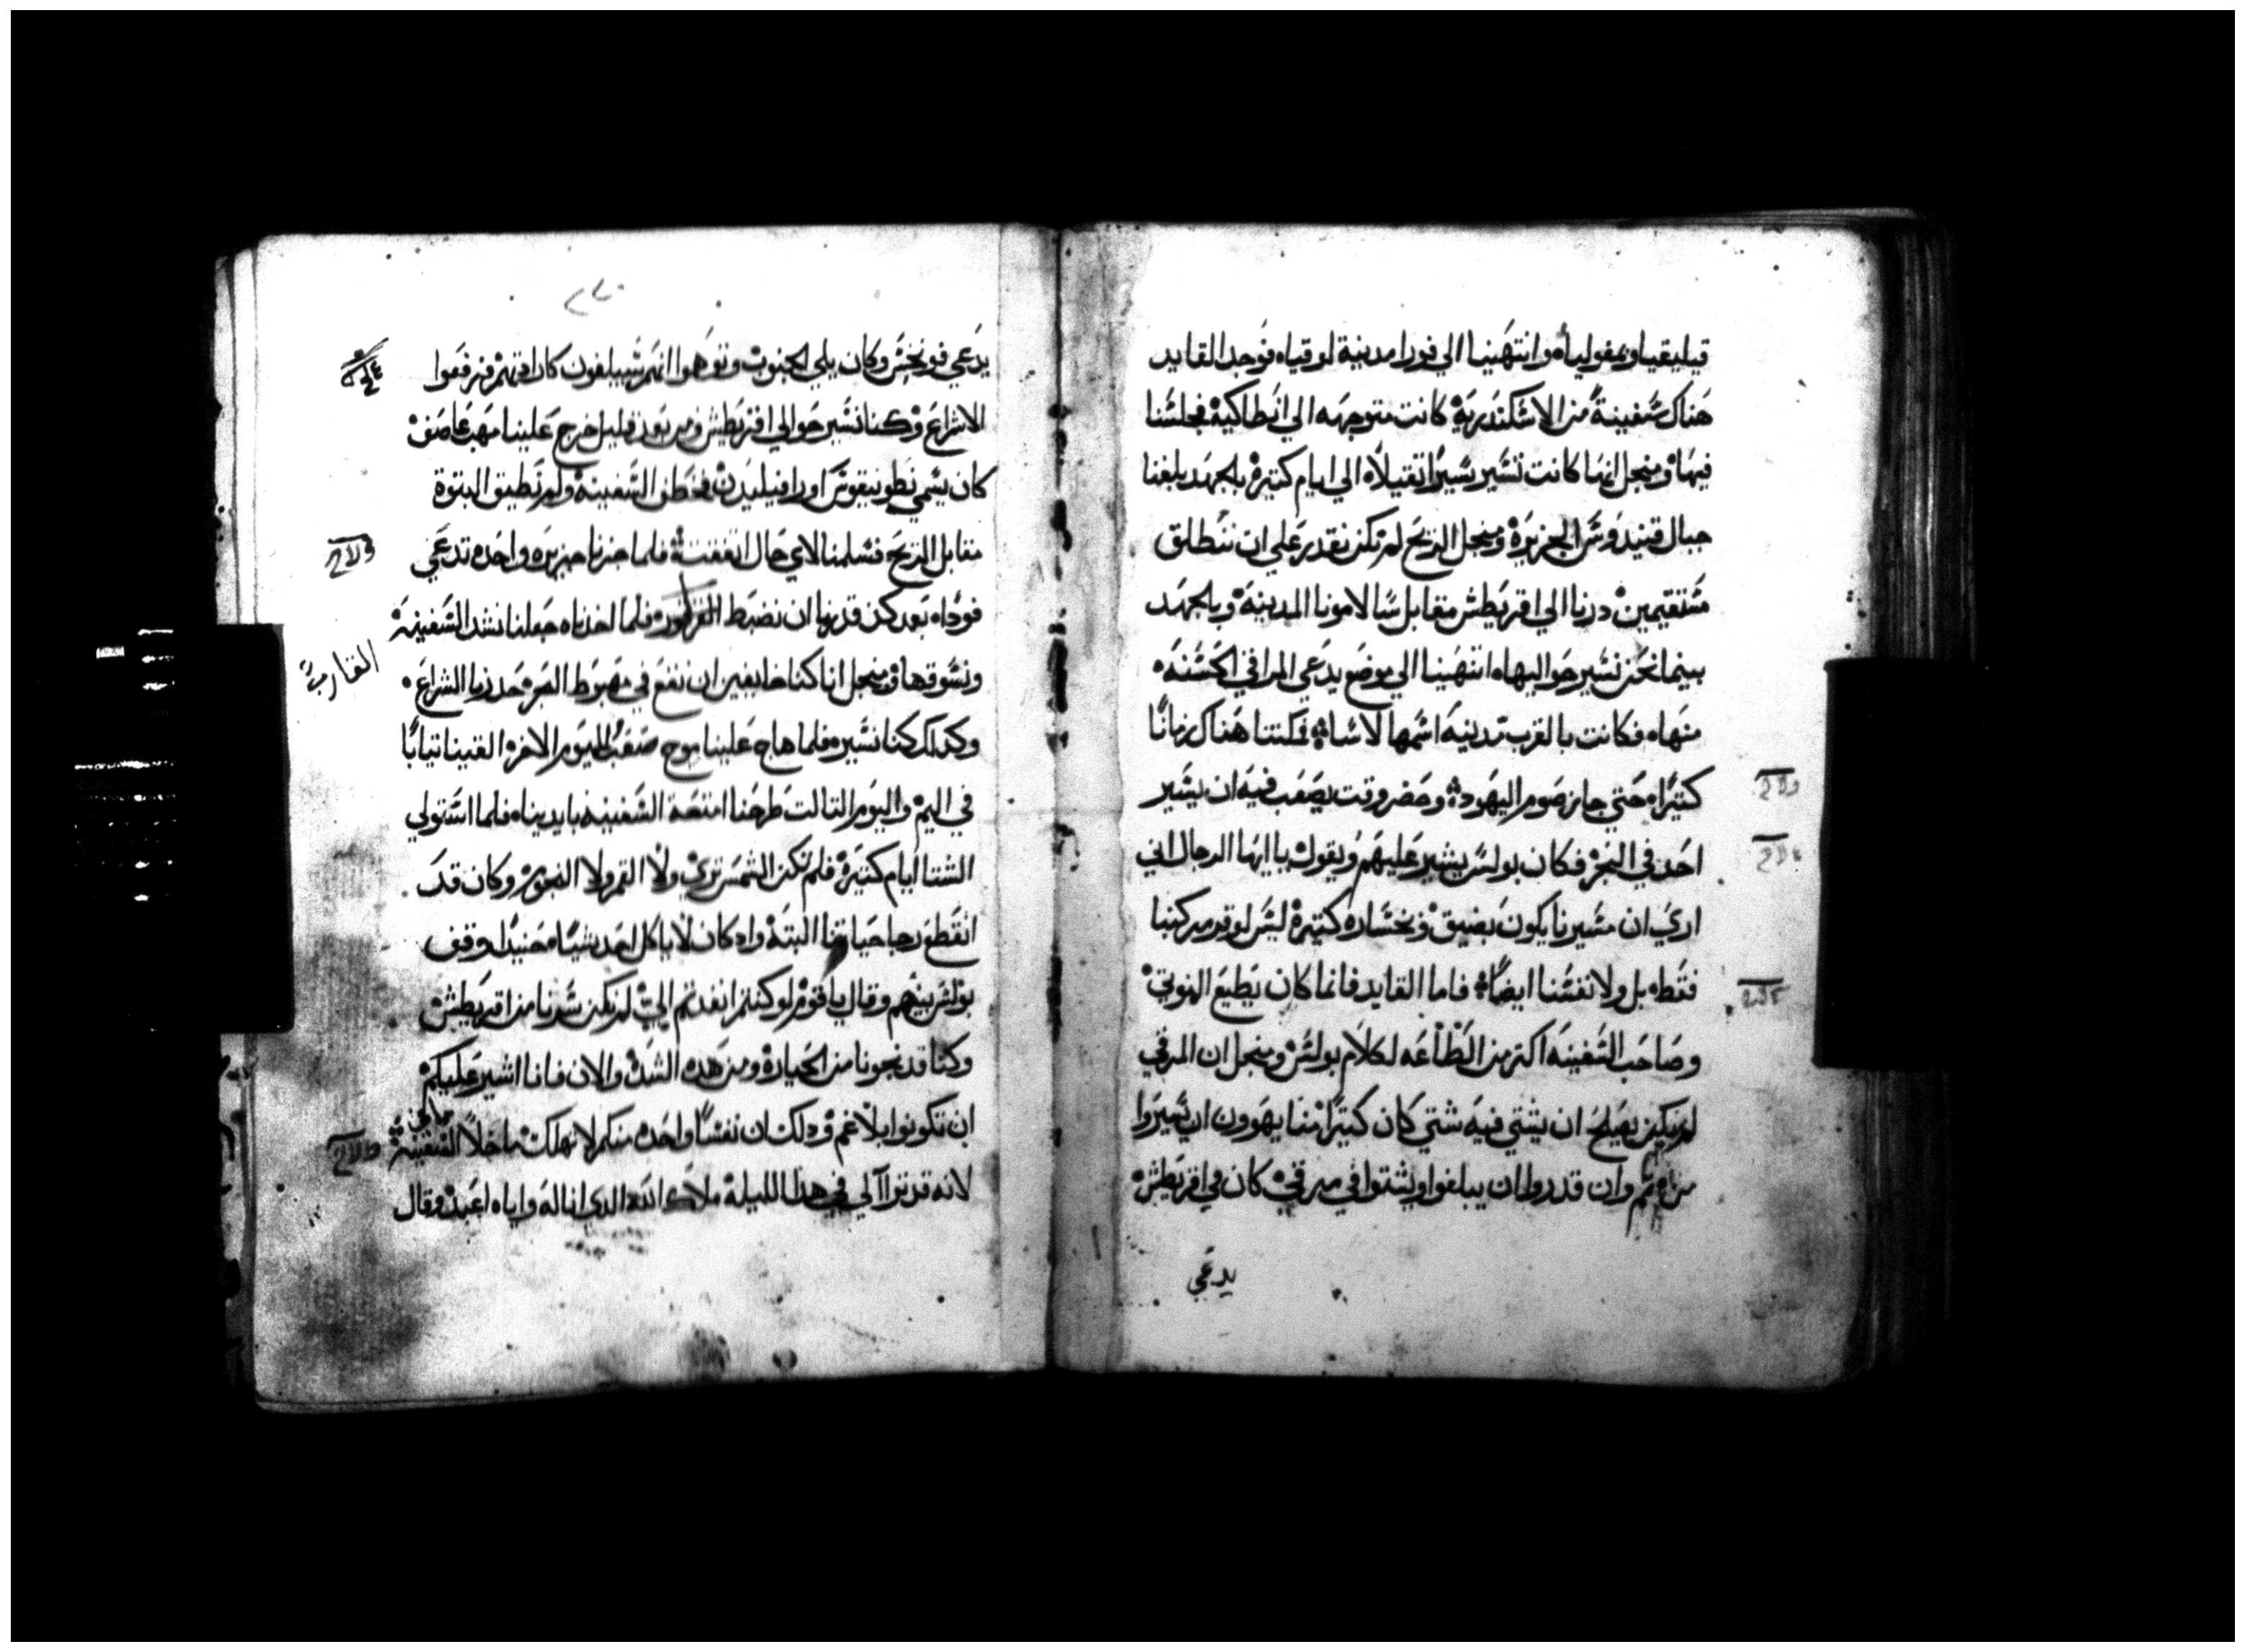 قيليقيا وبمفولياه وانتهينا الي فورا مدينة لوقياه فوجد القايد
هناك سفينة من الاسكندرية كانت متوجهه الي انطاكية فجلسنا
فيها ومنجل انها كانت تسير سيرا تقيلاه الي ايام كتيرة بالجهد بلغنا
جبال قنيدوس الجزيرة ومنجل الريح لم نكن نقدر علي ان ننطلق
مستقيمين درنا الي اقريطش مقابل سالامونا المدينة وبالجهد
بينما نحن نسير حواليها انتهينا الي موضع يدعي المراقي الحسنه
منها فكانت بالقرب مدينه اسمها لاسا فمكتنا هناك زمانا
كتيراه حتي جاز صوم اليهود وحضر وقت يصعب فيه ان يسير
احد في البحر فكان بولس يشير عليهم ويقول يا ايها الرجال اني
اري ان مسيرنا يكون بضيق وبخساره كتيرة ليس لوقر مركبنا
فقط بل ولانفسنا ايضا فاما القايد فانما كان يطيع النوتي
وصاحب السفينه اكتر من الطاعه لكلام بولس ومنجل ان المرقي
لم يكن يصلح ان يشتي فيه شتي كان كتيرا منا يهوون ان يسيروا
من تم وان قدروا ان يبلغوا ويشتوا في مرقي كان في اقريطش
يدعي
يدعي فونخس وكان يلي الجنوب وتوهموا انهم سيبلغون كارادتهم فرفعوا
الاشراع وكنا نسير حوالي اقريطش ومن بعد قليل خرج علينا مهب عاصف
كان يسمي طوبيقوس اوراقيليدن فخطف السفينة ولم تطيق التبوة
مقابل الريح فسلمنا لاي حال فلما جزنا جزيره واحده تدعي
فوداه بعد كد قدرنا ان نضبط فلما اخدناه جعلنا نشد السفينة
القارب
ونسوقها ومنجل انا كنا خايفين ان نقع في مهبط البحر حدرنا الشراع
وكدلك كنا نسير فلما هاج علينا موج صعب لليوم الاخر القينا تيابا
في اليم واليوم التالت طرحنا امتعة السفينة بايدينا فلما استولي
الشتا ايام كتيرة فلم تكن الشمس تري ولا القمر ولا النجوم وكان قد
انقطع رجا حياتنا البتة واد كان لا ياكل احد شيا حنيدا وقف
بولس بينهم وقال يا قوم لو كنتم انقدتم الي لم نكن سرنا من اقريطش
وكنا قد نجونا من الخسارة ومن هده الشده والان فانا اشير عليكم
ان تكونوا بلا غم ودلك ان نفسا واحده منكم لا تهلك ما خلا السفينة
لانه قد تراآ لي في هدا الليلة ملاك الله الدي انا له واياه اعبد وقال